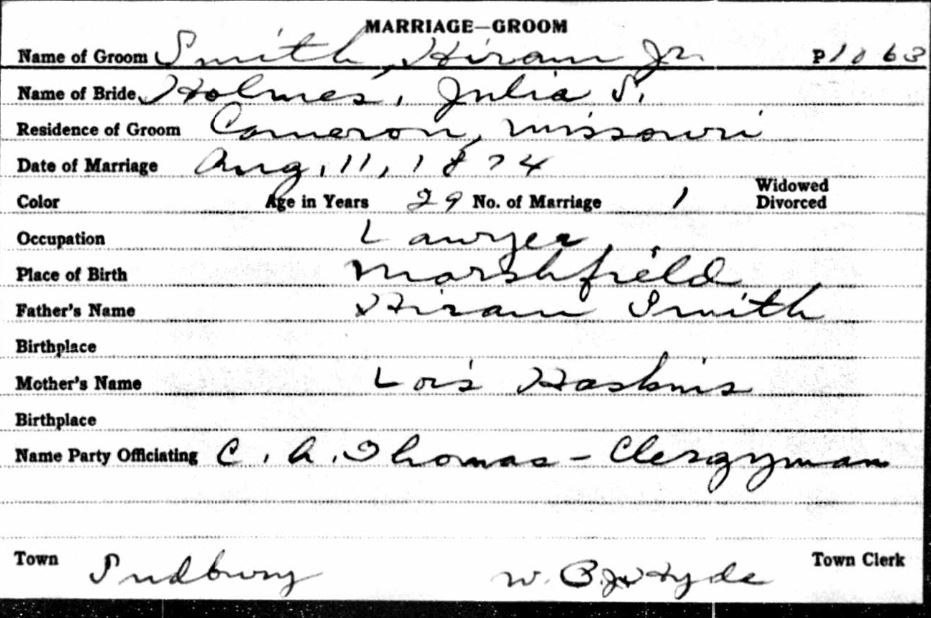 MARRIAGE—GROOM
Name of Groom Smith, Hiram Jr. P1063
Name of Bride Holmes, Julia S.
Residence of Groom Cameron, Missouri
Date of Marriage Aug, 11, 1874
Color Age in Years 29 No. of Marriage 1 Widowed Divorced
Occupation Lawyer
Place of Birth Marshfield
Father's Name Hiram Smith
Birthplace
Mother's Name Lois Haskins
Birthplace
Name Party Officiating C. A. Thomas - Clergyman
Town Sudbury W. Hyde Town Clerk